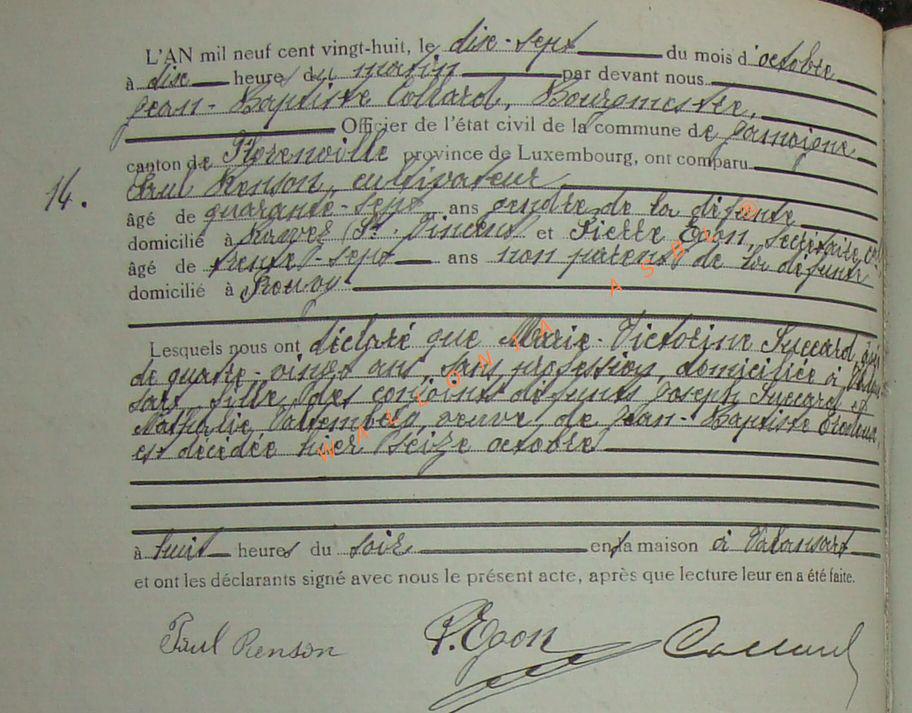 L'AN mil neuf cent vingt-huit, le dix-sept du mois d'octobre
à dix heures du matin par devant nous
Jean-Baptiste Collard, Bourgmestre,
Officier de l'état civil de la commune de Jamoigne
canton de Florenville province de Luxembourg, ont comparu
14. Paul Renson, cultivateur
âgé de quarante-sept ans gendre de la défunte
domicilié à (St. Vincent) et Pierre Egon, Secrétaire,
âgé de trente-sept ans non parent de la défunte
domicilié à
Lesquels nous ont déclaré que Marie-Victorine Succard,
de quatre-vingt ans, sans profession, domiciliée à
sart, fille des conjoints défunts Joseph Succard et
Mathilie veuve de Jean-Baptiste
est décédée hier seize octobre
à huit heures du soir en sa maison à Valansart
et ont les déclarants signé avec nous le présent acte, après que lecture leur en a été faite.
Paul Renson P. Egon Collard
WALLONIA ASBL ©